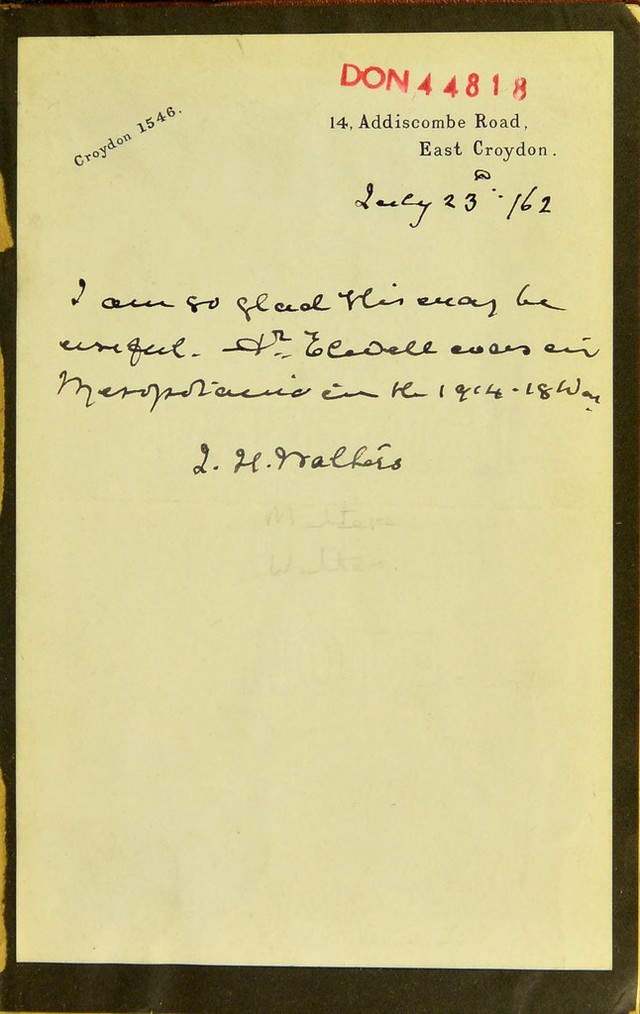 DON 44818
Croydon 1546.
14, Addiscombe Road,
East Croydon.
July 23rd /62
I am so glad this may be
useful. Dr. Elwell was in
Mesopotamia in the 1914-18 War
H. Walters